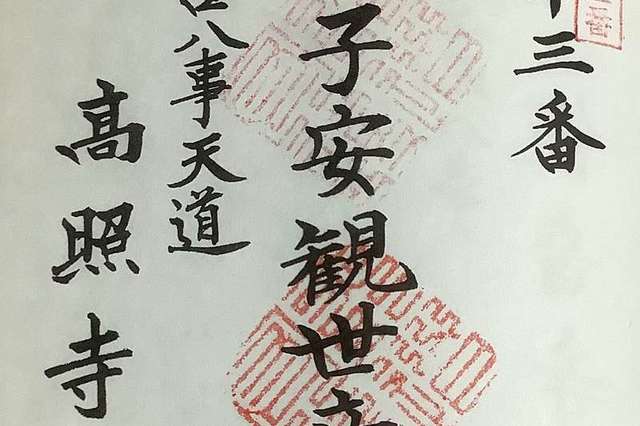 十三番
子安観世音
古八事天道
高照寺